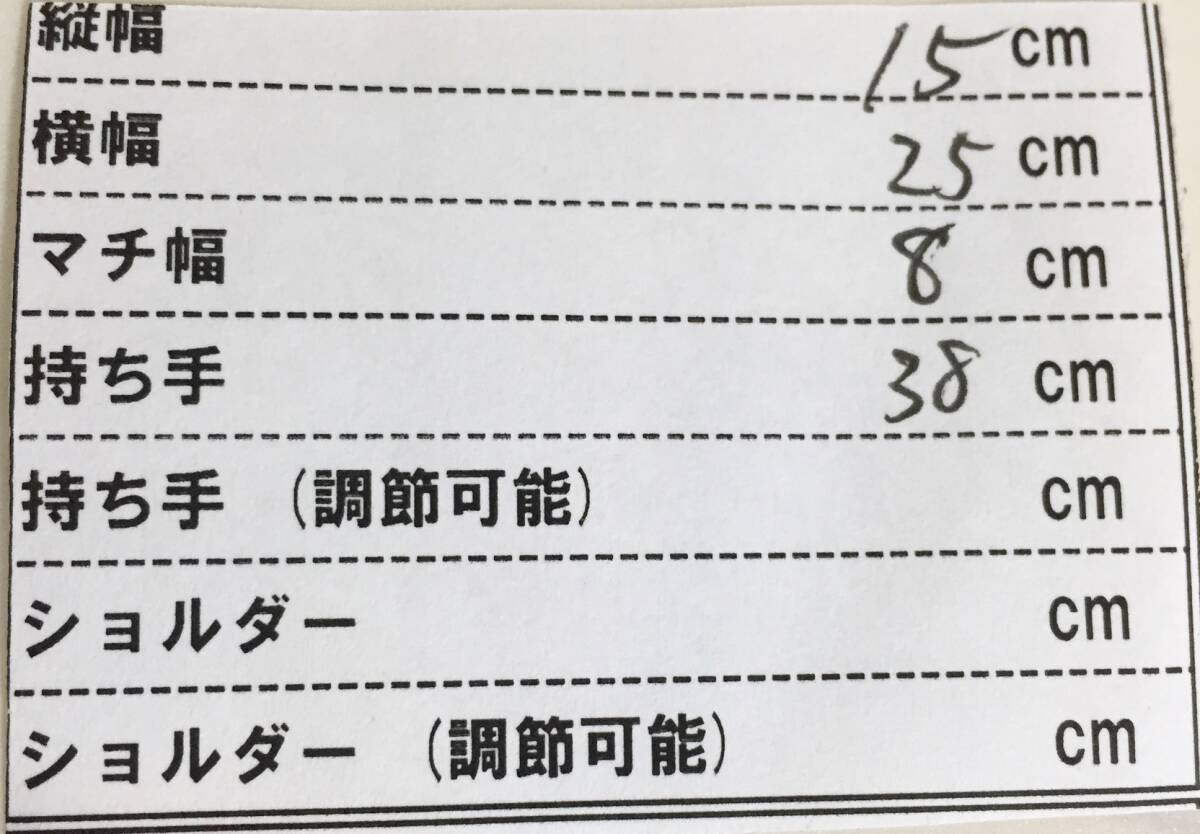 縦幅 15 cm
横幅 25 cm
マチ幅 8 cm
持ち手 38 cm
持ち手 (調節可能) cm
ショルダー cm
ショルダー (調節可能) cm